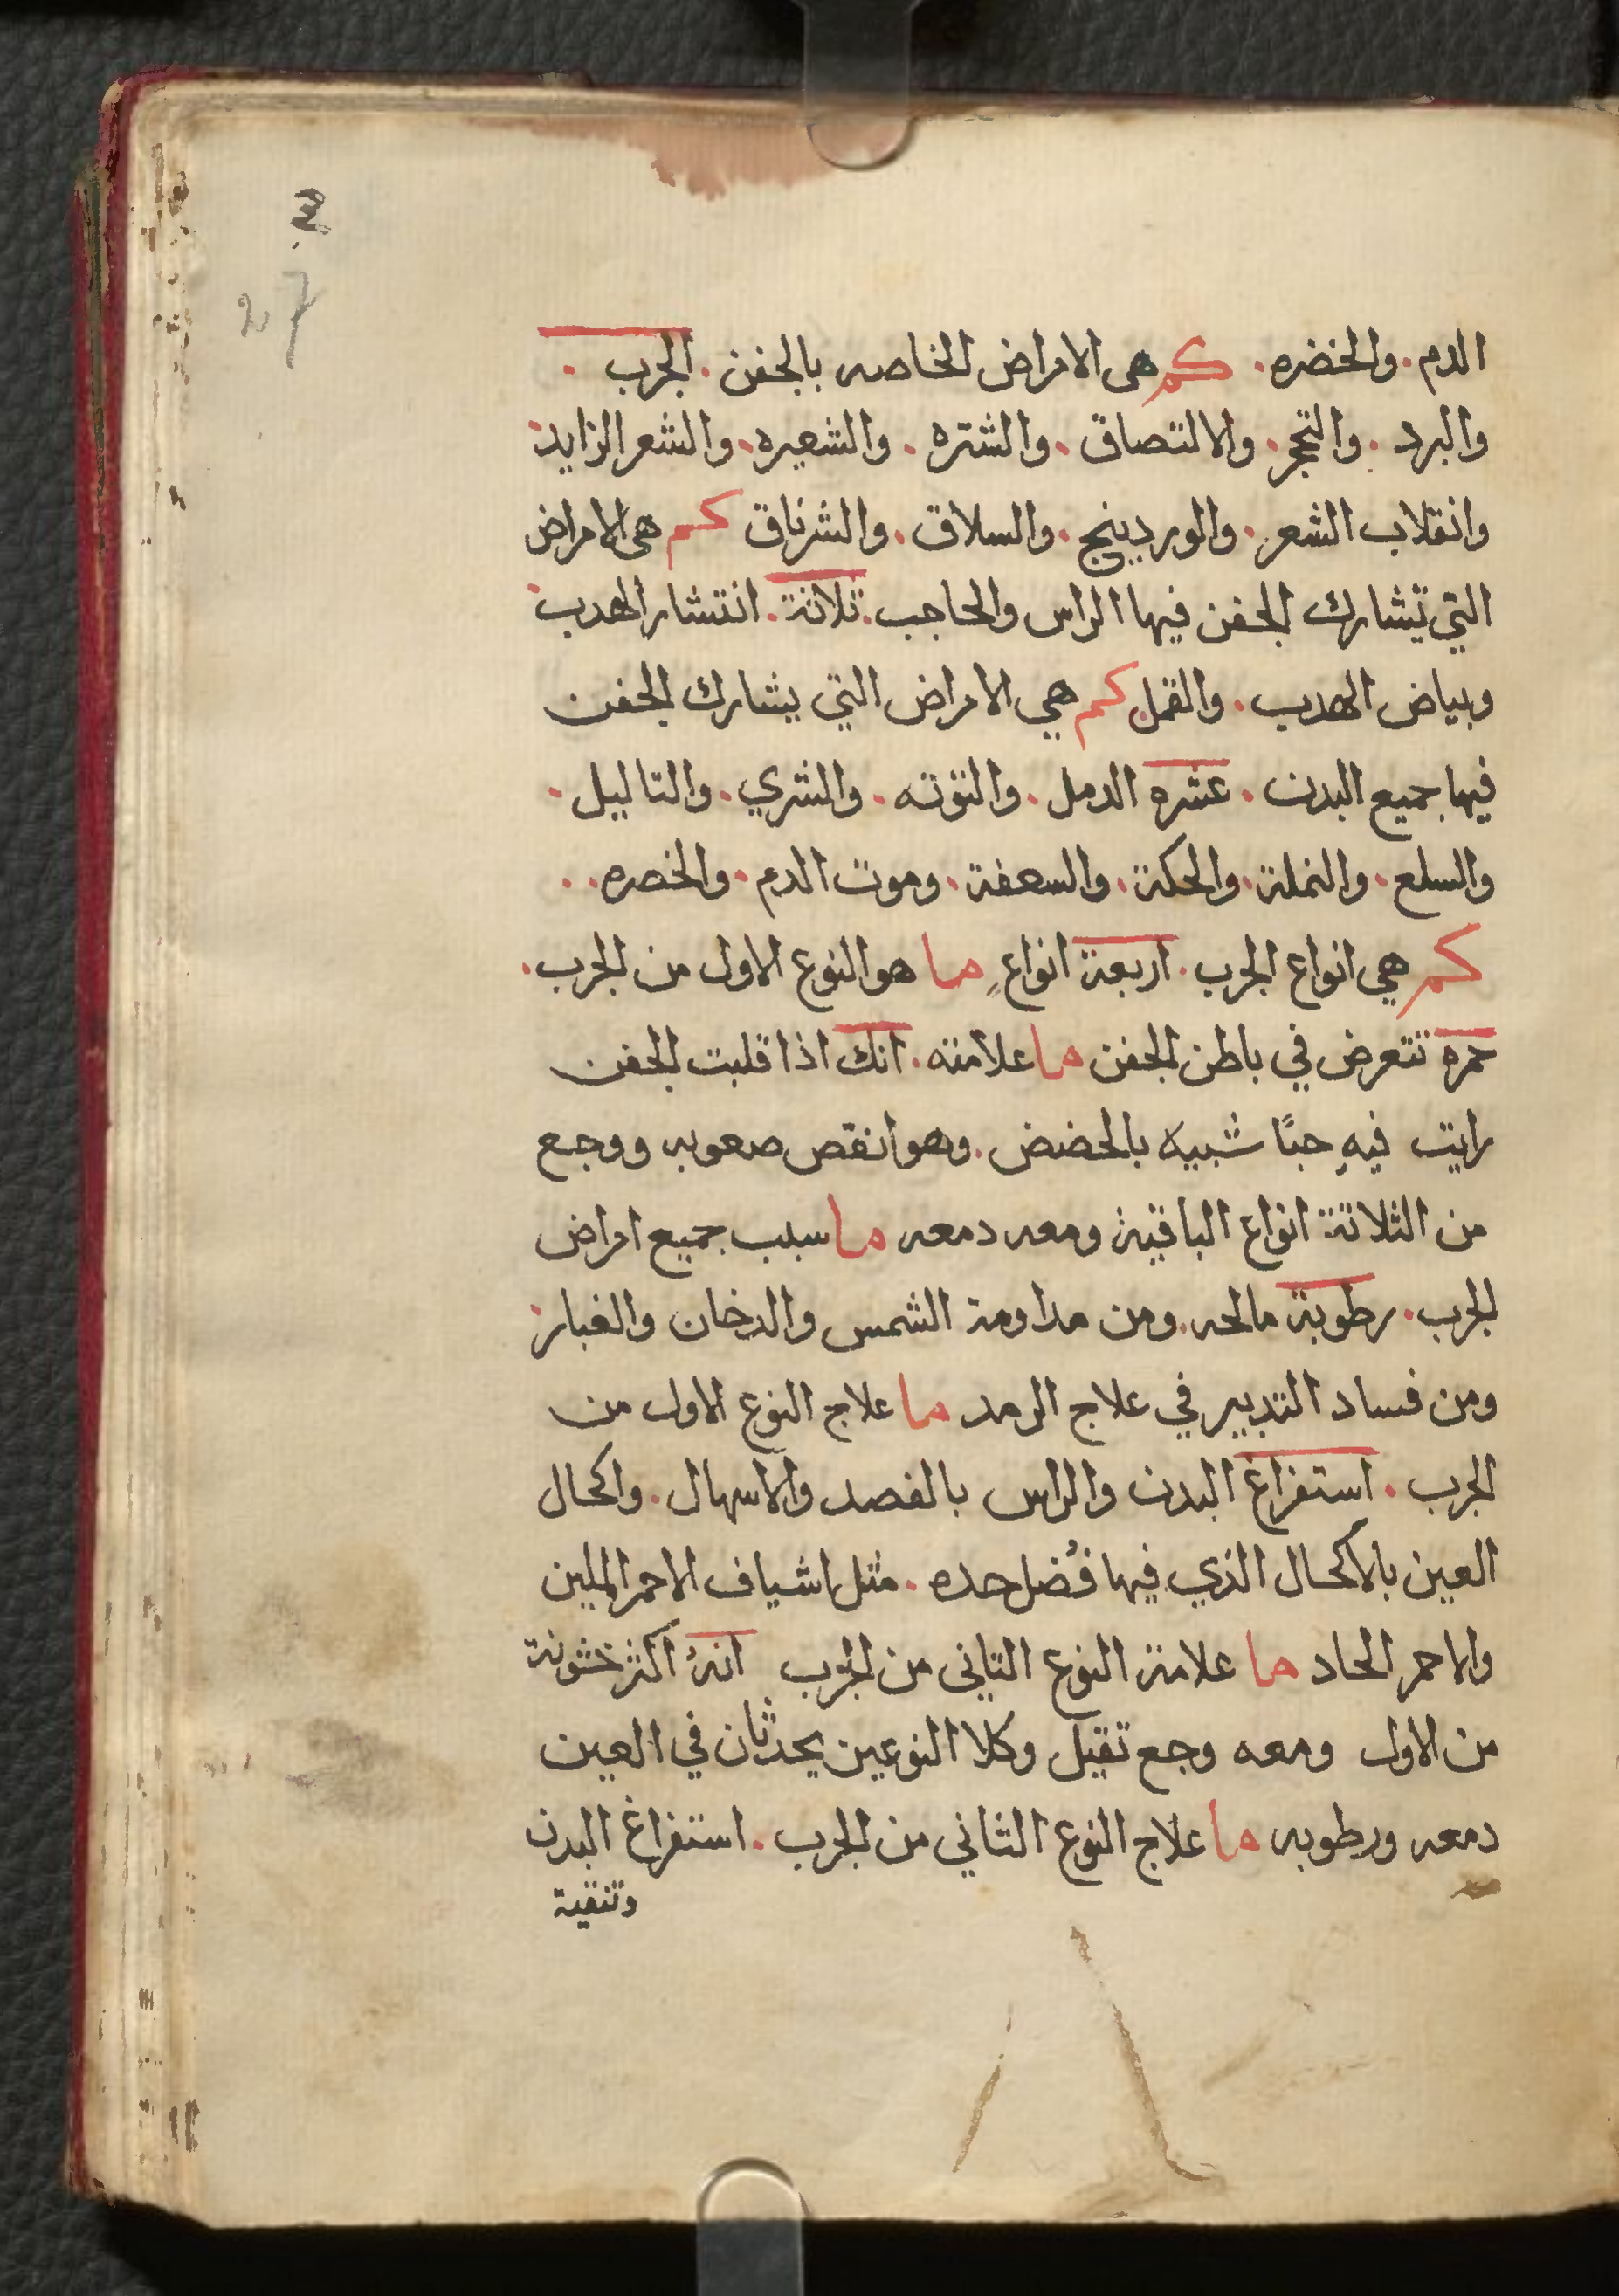 الدم . والخضره . كم هى الامراض الخاصه بالجفن . الجرب .
والبرد . والتحجر . والالتصاق . والشتره . والشعيره . والشعر الزايد .
وانقلاب الشعر . والوردينج . والسلاق . والشرناق كم هى الامراض
التي تشارك الجفن فيها الراس والحاجب . ثلاثة . انتشار الهدب .
وبياض الهدب . والقمل كم هي الامراض التي يشارك الجفن
فيها جميع البدن . عشره الدمل . والتوته . والشري . والتاليل .
والسلع . والنملة . والحكة . والسعفة . وموت الدم . والخصره . .
كم هي انواع الجرب . اربعة انواعٍ ما هو النوع الاول من الجرب .
حمره تتعرض في باطن الجفن ما علامته . انك اذا قلبت الجفن
رايت فيهِ حبًا شبيه بالحضض . وهو انقص صعوبه ووجع
من الثلاثة انواع الباقية ومعه دمعه ما سبب جميع امراض
الجرب . رطوبة مالحه . ومن مداومة الشمس والدخان والغبار .
ومن فساد التدبير في علاج الرمد ما علاج النوع الاول من
الجرب . استفراغ البدن والراس بالفصد والاسهال . واكحال
العين بالاكحال الذي فيها فُضل حده . مثل اشياف الاحمر الملين
والاحمر الحاد ما علامة النوع التاني من الجرب انهُ اكثر خشونة
من الاول ومعه وجع تقيل وكلا النوعين يحدثان في العين
دمعه ورطوبه ما علاج النوع الثاني من الجرب . استفراغ البدن
وتنقية